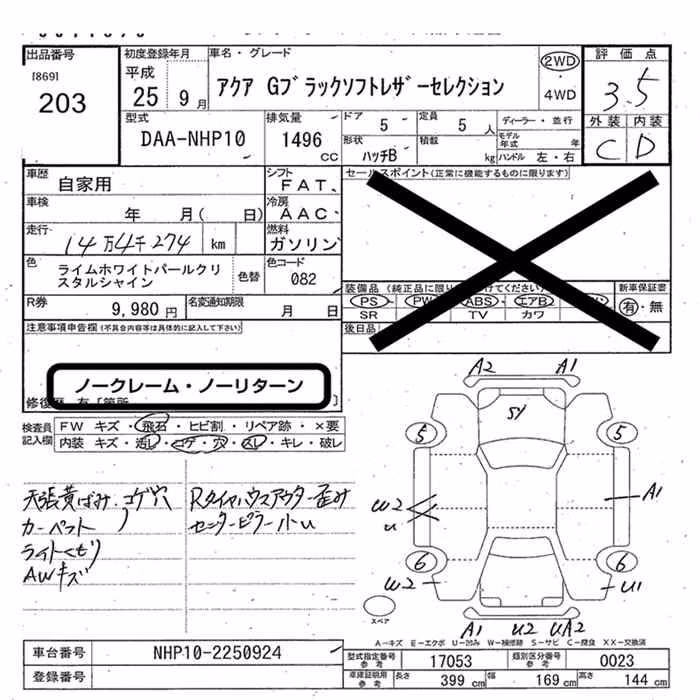 出品番号
[869]
203
初度登録年月
平成
25 9 月
車名・グレード
アクア Gブラックソフトレザーセレクション
2WD
・
4WD
評価点
3.5
外装 内装
C D
型式
DAA-NHP10
排気量
1496
cc
ドア
5
定員
5 人
ディーラー・並行
形状
ハッチB
積載
kg
モデル年式 年
ハンドル 左・右
車歴
自家用
シフト
FAT
セールスポイント(正常に機能するものに限ります)
車検
年 月( 日)
冷房
AAC
走行
14万4千274 km
燃料
ガソリン
色
ライムホワイトパールクリスタルシャイン
色替
色コード
082
装備品 (純正品に限り
けてください)
新車保証書
有・無
PS PW ABS エアB
SR TV カワ
R券
9,980 円
名変通知期限
月 日
後日品
注意事項申告欄 (不具合内容等は具体的に記入して下さい)
ノークレーム・ノーリターン
修復歴 有「箇所 」
検査員記入欄
FW キズ・飛石・ヒビ割・リペア跡・×要
内装 キズ・汚レ・コゲ・穴・スレ・キレ・破レ
天張黄ばみ.コゲ穴
カーペット
ライトくもり
AWキズ
Rタイヤハウスアウター歪み
センターピラー小U
A2 A1
SY
5 5
A1
W2
U
6 6
W2 U1
スペア
A1 U2 UA2
A-キズ E-エクボ U-凹み W-補修跡 S-サビ C-腐食 XX-交換済
車台番号
NHP10-2250924
登録番号
型式指定番号 参考
17053
類別区分番号 参考
0023
車庫証明用 参考
長さ 399 cm 幅 169 cm 高さ 144 cm